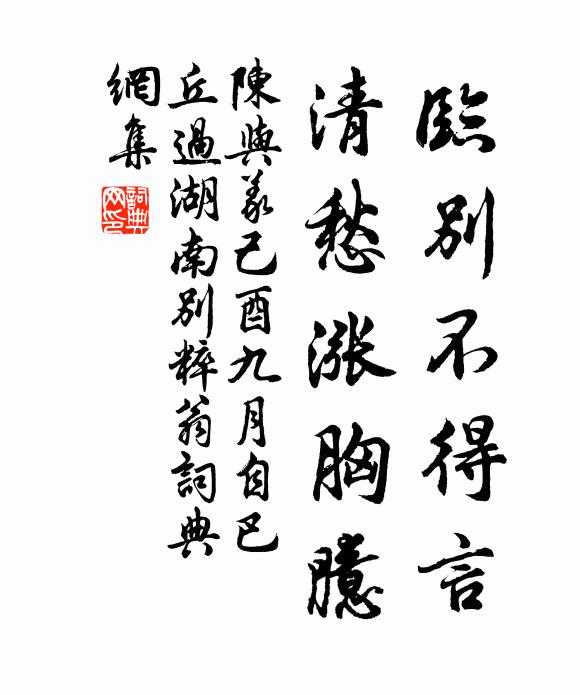 臨別不得言
清愁漲胸臆
陳與義己酉九月自巴
丘過湖南別粹翁詞典
網集
詞典網印